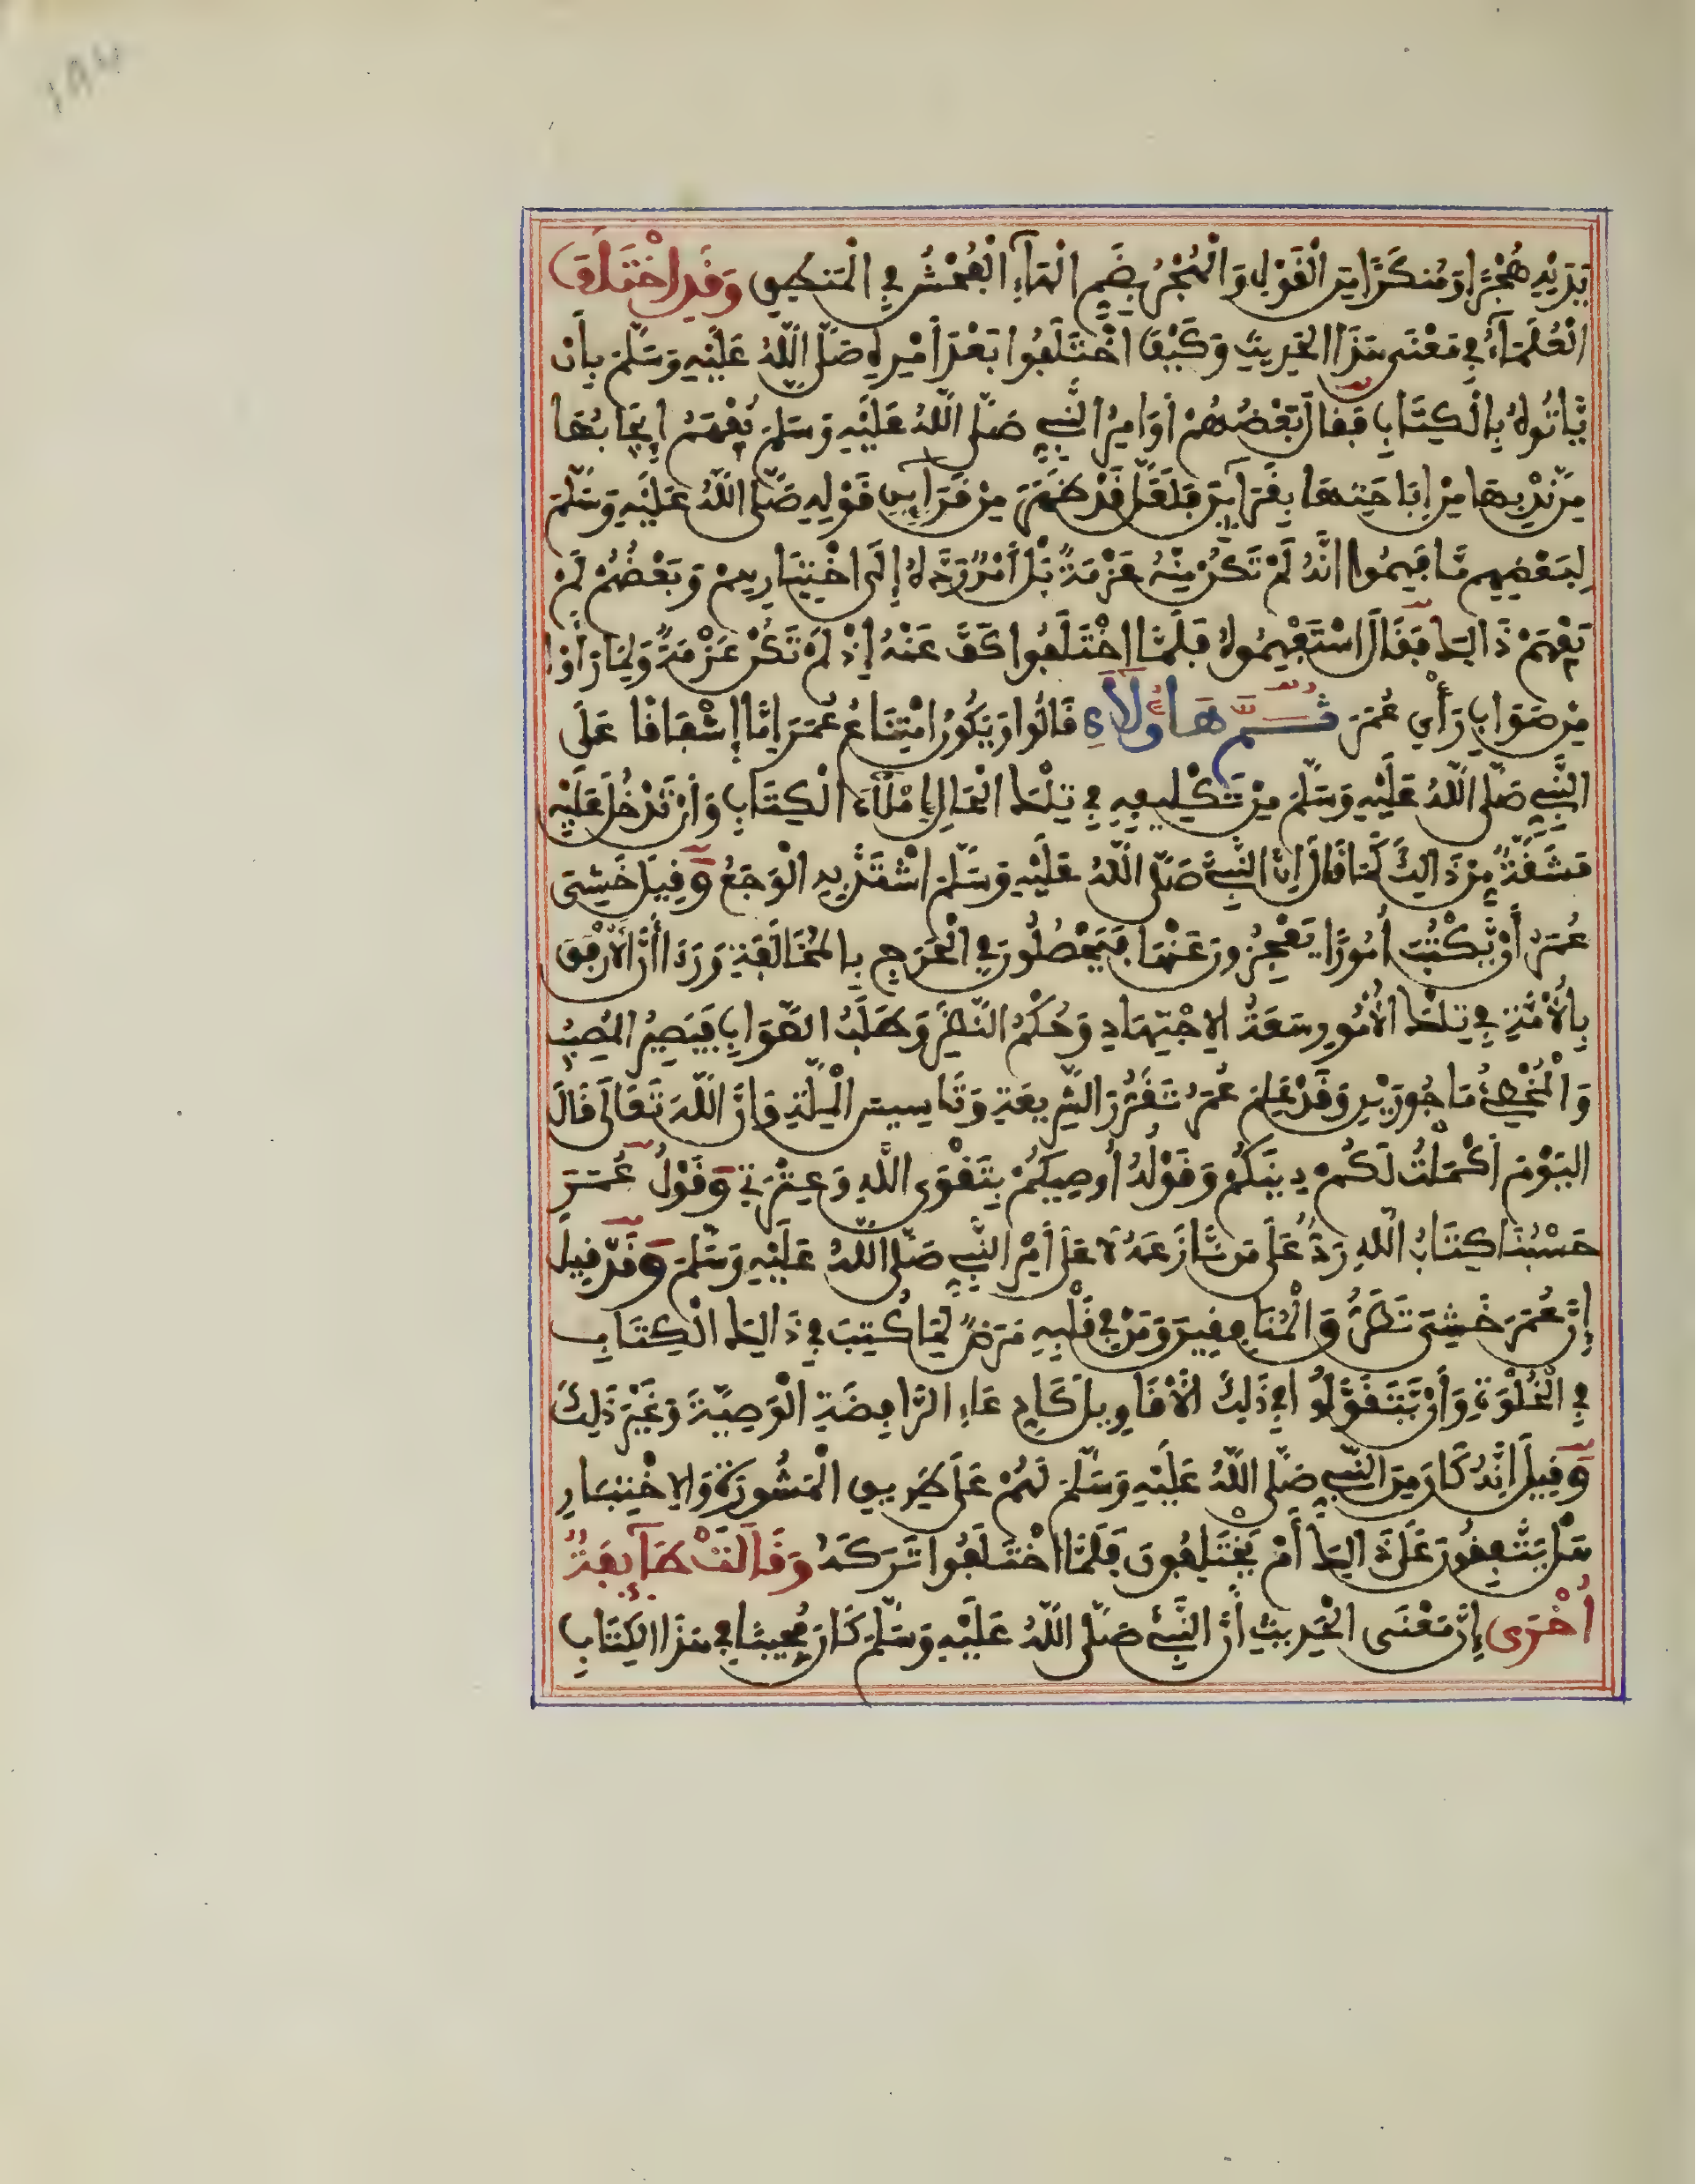 يَدَيْهِ هُجْرًا وَمُنكَرًا مِنَ الْقَوْلِ وَالْهُجْرُ بِضَمِّ الْهَاءِ الْفُحْشُ فِي الْمَنطِقِ وَقَدِ اخْتَلَفَ
الْعُلَمَاءُ فِي مَعْنَى هَذَا الْحَدِيثِ وَكَيْفَ اخْتَلَفُوا بَعْدَ أَمْرِهِ صَلَّى اللَّهُ عَلَيْهِ وَسَلَّمَ بِأَنْ
يَّاتُوهُ بِالْكِتَابِ فَقَالَ بَعْضُهُمْ أَوَامِرُ النَّبِيِّ صَلَّى اللَّهُ عَلَيْهِ وَسَلَّمَ يُفْهَمُ إِيجَابُهَا
مِن نَّدْبِهَا مِنْ إِبَاحَتِهَا بِقَرَائِنَ فَلَعَلَّ قَدْ ظَهَرَ مِنْ قَرَائِنِ قَوْلِهِ صَلَّى اللَّهُ عَلَيْهِ وَسَلَّمَ
لِبَعْضِهِم مَّا فَهِمُوا أَنَّهُ لَمْ تَكُنْ مِنْهُ عَزْمَةٌ بَلْ أَمْرٌ رَدَّهُ إِلَى اخْتِيَارِهِمْ وَبَعْضُهُمْ لَمْ
يَفْهَمْ ذَالِكَ فَقَالَ اسْتَفْهِمُوهُ فَلَمَّا اخْتَلَفُوا كَفَّ عَنْهُ إِذْ لَمْ تَكُنْ عَزْمَةٌ وَلِمَا رَأَوْا
مِنْ صَوَابِ رَأْيِ عُمَرَ ثُمَّ هَاؤُلَاءِ قَالُوا وَيَكُونُ امْتِنَاعُ عُمَرَ إِمَّا إِشْفَاقًا عَلَى
النَّبِيِّ صَلَّى اللَّهُ عَلَيْهِ وَسَلَّمَ مِنْ تَكْلِيفِهِ فِي تِلْكَ الْحَالِ إِمْلَاءَ الْكِتَابِ وَأَنْ تَدْخُلَ عَلَيْهِ
مَشَقَّةٌ مِنْ ذَالِكَ كَمَا قَالَ إِنَّ النَّبِيَّ صَلَّى اللَّهُ عَلَيْهِ وَسَلَّمَ اشْتَدَّ بِهِ الْوَجَعُ وَقِيلَ خَشِيَ
عُمَرُ أَنْ يَّكْتُبَ أُمُورًا يَعْجِزُونَ عَنْهَا فَيَحْصُلُونَ فِي الْحَرَجِ بِالْمُخَالَفَةِ وَرَءَا أَنَّ الْأَرْفَقَ
بِالْأُمَّةِ فِي تِلْكَ الْأُمُورِ سَعَةُ الِاجْتِهَادِ وَحُكْمُ النَّظَرِ وَطَلَبُ الصَّوَابِ فَيَصِيرُ الْمُصِيبُ
وَالْمُخْطِئُ مَاجُورَيْنِ وَقَدْ عَلِمَ عُمَرُ تَقَرُّرَ الشَّرِيعَةِ وَتَاسِيسَ الْمِلَّةِ وَأَنَّ اللَّهَ تَعَالَى قَالَ
الْيَوْمَ أَكْمَلْتُ لَكُمْ دِينَكُمْ وَقَوْلُهُ أُوصِيكُمْ بِتَقْوَى اللَّهِ وَعِتْرَتِي وَقَوْلُ عُمَرَ
حَسْبُنَا كِتَابُ اللَّهِ رَدٌّ عَلَى مَن نَّازَعَهُ لَا عَلَى أَمْرِ النَّبِيِّ صَلَّى اللَّهُ عَلَيْهِ وَسَلَّمَ وَقَدْ قِيلَ
إِنَّ عُمَرَ خَشِيَ تَطَرُّقَ الْمُنَافِقِينَ وَمَنْ فِي قَلْبِهِ مَرَضٌ لِمَا كُتِبَ فِي ذَالِكَ الْكِتَابِ
فِي الْخَلْوَةِ وَأَنْ يَّتَقَوَّلُوا فِي ذَلِكَ الْأَقَاوِيلَ كَادِّعَاءِ الرَّافِضَةِ الْوَصِيَّةَ وَغَيْرَ ذَلِكَ
وَقِيلَ إِنَّهُ كَانَ مِنَ النَّبِيِّ صَلَّى اللَّهُ عَلَيْهِ وَسَلَّمَ لَهُمْ عَلَى طَرِيقِ الْمَشُورَةِ وَالِاخْتِبَارِ
هَلْ يَتَّفِقُونَ عَلَى ذَالِكَ أَمْ يَخْتَلِفُونَ فَلَمَّا اخْتَلَفُوا تَرَكَهُ وَقَالَتْ طَائِفَةٌ
أُخْرَى إِنَّ مَعْنَى الْحَدِيثِ أَنَّ النَّبِيَّ صَلَّى اللَّهُ عَلَيْهِ وَسَلَّمَ كَانَ مُجِيبًا فِي هَذَا الْكِتَابِ